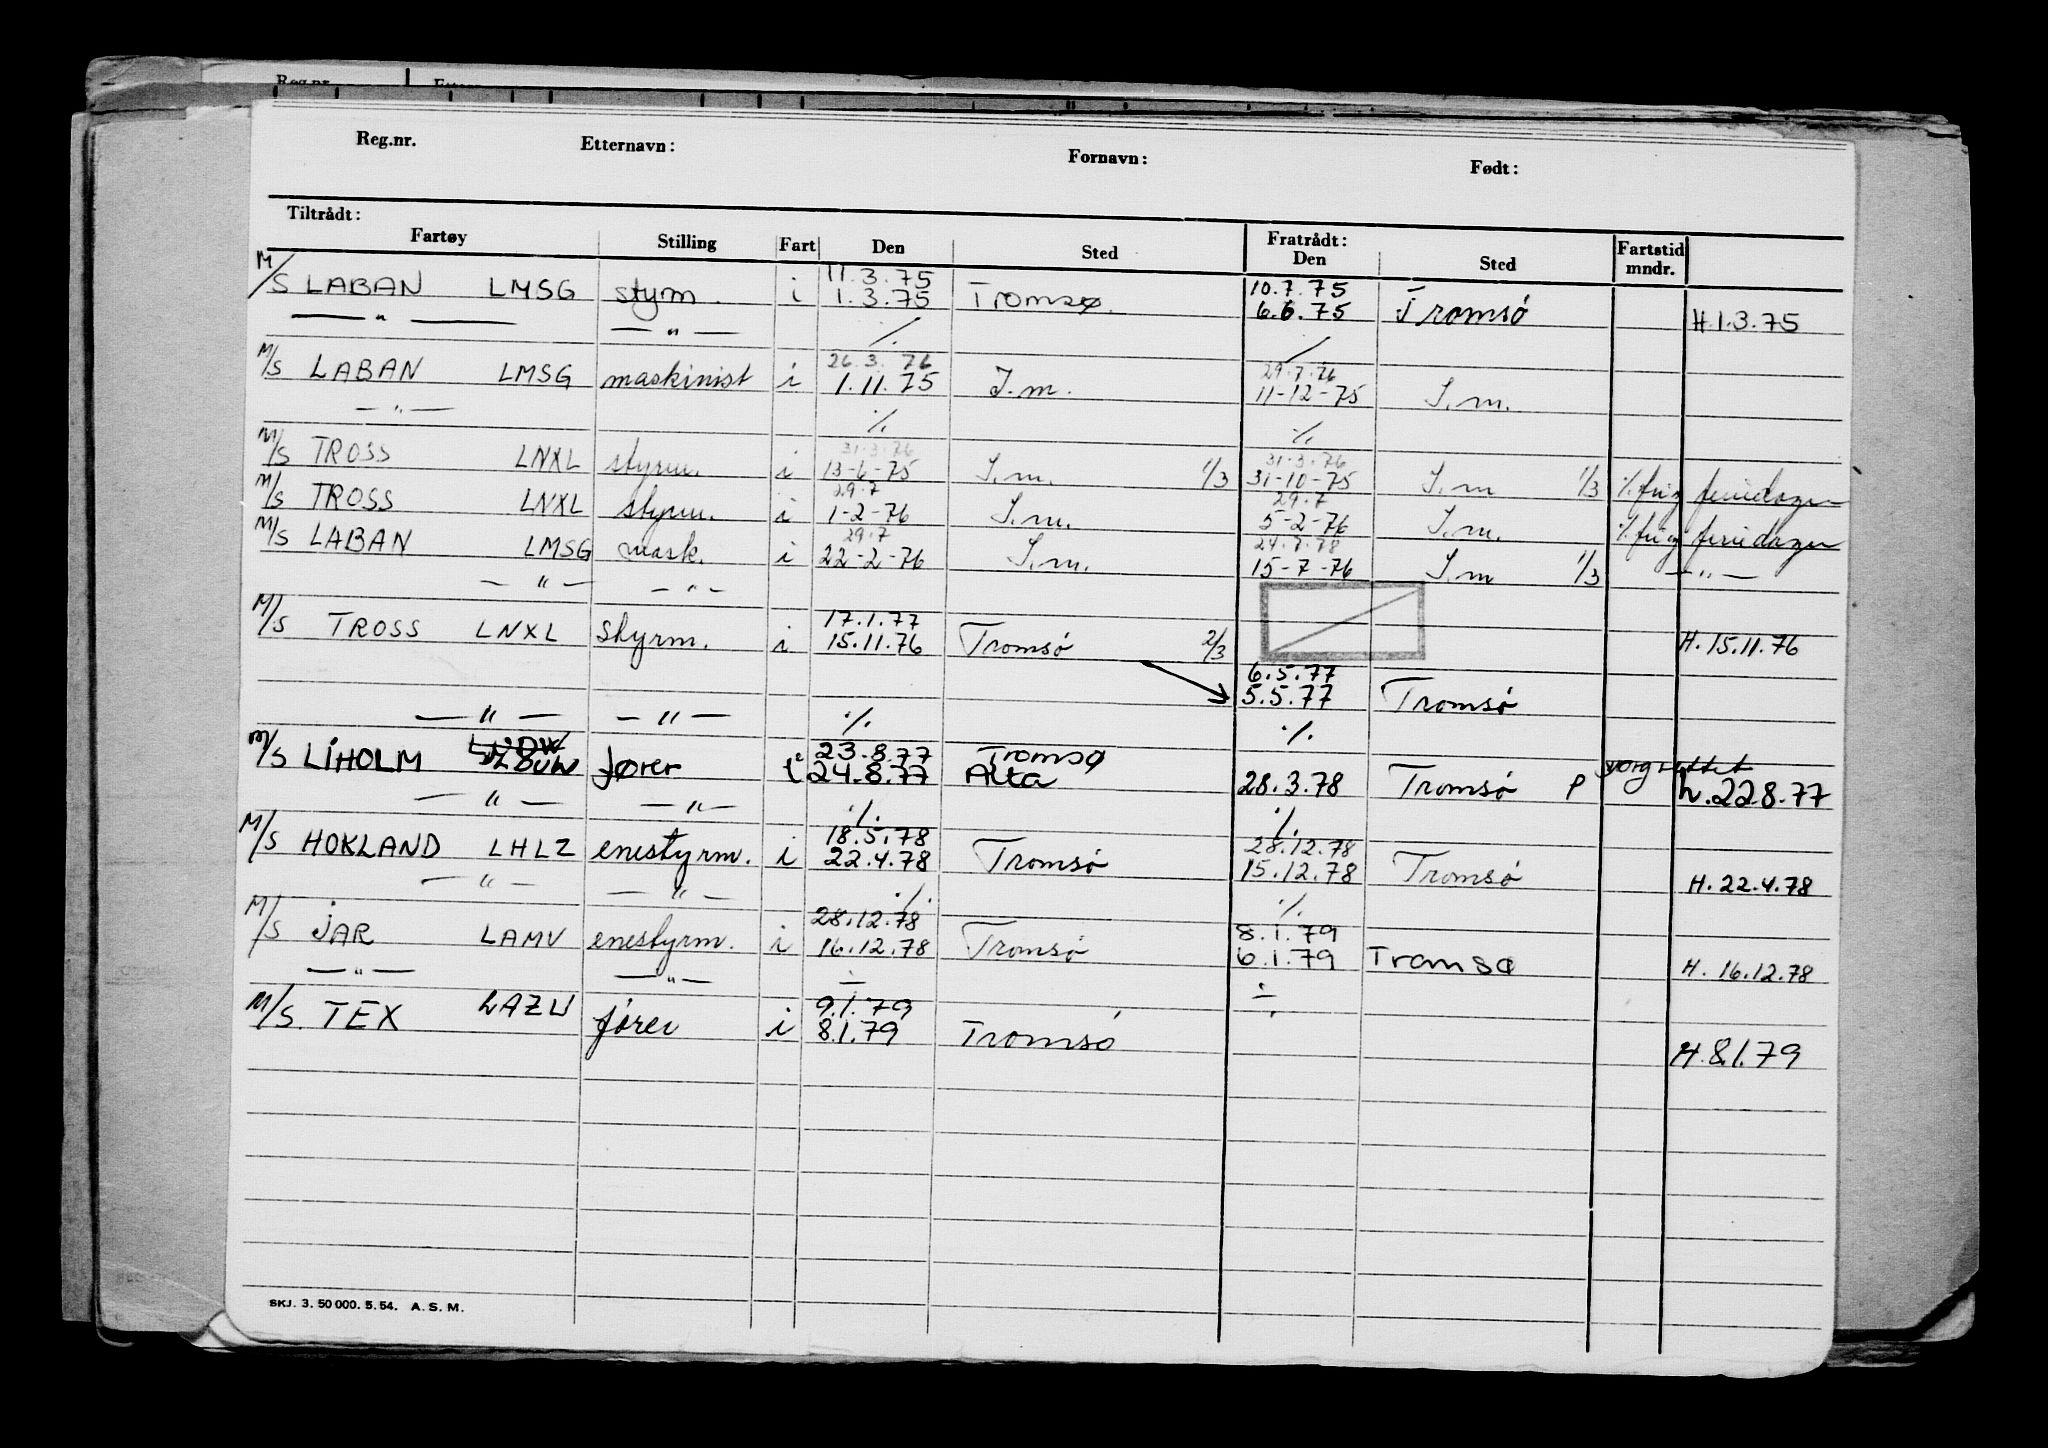 Reg.nr. Etternavn: Fornavn: Født:
Tiltrådt: Fratrådt:
Fartøy Stilling Fart Den Sted Den Sted Fartstid mndr.
11.3.75 10.7.75
M/S LABAN LMSG stym. i 1.3.75 Tromsø. 6.6.75 Tromsø H.1.3.75
— " — — " — ./. ./.
26.3.76 29.7.76
M/S LABAN LMSG maskinist i 1.11.75 I.m. 11-12-75 I.m.
— " — ./. ./.
31.3.76 31.3.76
M/S TROSS LNXL styrm. i 13-6-75 I.m. 1/3 31-10-75 I.m 1/3 % fri og feriedager
29.7 29.7
M/S TROSS LNXL styrm. i 1-2-76 I.m. 5-2-76 I.m. % fri og feriedager
29.7 24.7.78
M/S LABAN LMSG mask. i 22-2-76 I.m. 15-7-76 I.m 1/3 — " —
— " — — " —
17.1.77
M/S TROSS LNXL styrm. i 15.11.76 Tromsø 2/3 H. 15.11.76
6.5.77
5.5.77 Tromsø
— " — — " — ./. ./.
23.8.77 Tromsø
M/S LIHOLM fører i 24.8.77 Alta 28.3.78 Tromsø P h.22.8.77
— " — — " — ./. ./.
18.5.78 28.12.78
M/S HOKLAND LHLZ enestyrm. i 22.4.78 Tromsø 15.12.78 Tromsø H. 22.4.78
— " — — " — ./. ./.
28.12.78 8.1.79
M/S JAR LAMV enestyrm. i 16.12.78 Tromsø 6.1.79 Tromsø H. 16.12.78
— " — — " — ÷ ÷
9.1.79
M/S. TEX LAZU fører i 8.1.79 Tromsø H.8.1.79
SKJ. 3. 50 000. 5. 54. A. S. M.